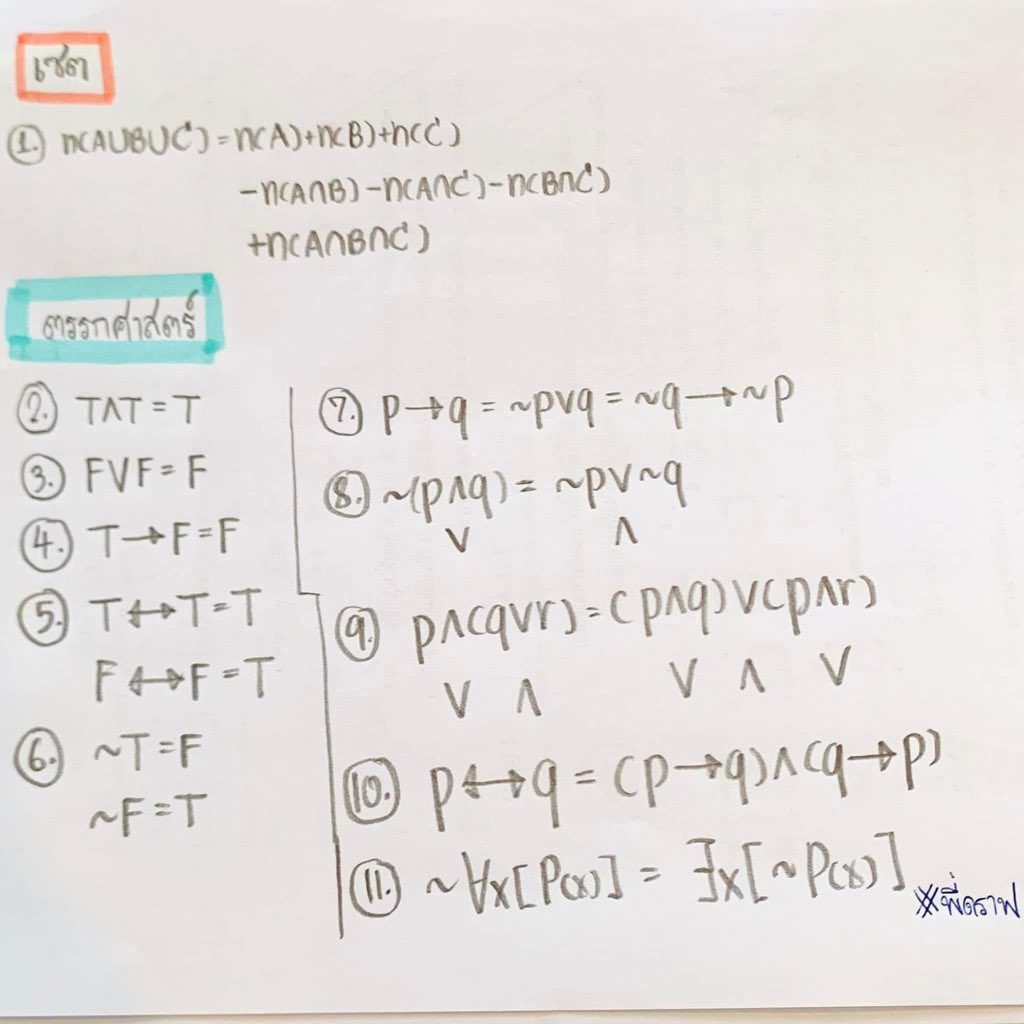 เซต
1. n(A∪B∪C) = n(A)+n(B)+n(C)
-n(A∩B) -n(A∩C) -n(B∩C)
+n(A∩B∩C)
ตรรกศาสตร์
2. T∧T = T
3. F∨F = F
4. T→F = F
5. T↔T = T
F↔F = T
6. ~T = F
~F = T
7. p→q = ~p∨q = ~q→~p
8. ~(p∧q) = ~p∨~q
∨ ∧
9. p∧(q∨r) = (p∧q)∨(p∧r)
∨ ∧ ∨ ∧ ∨
10. p↔q = (p→q)∧(q→p)
11. ~∀x[P(x)] = ∃x[~P(x)]
※พี่ดราฟ